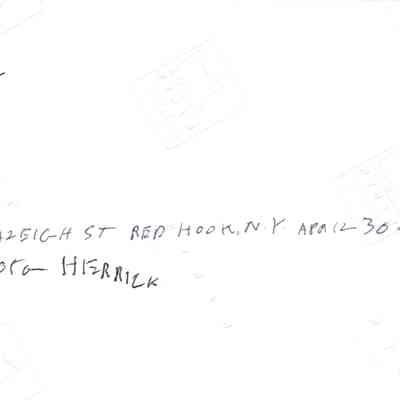 RALEIGH ST RED HOOK, N.Y. APRIL 30
HERRICK